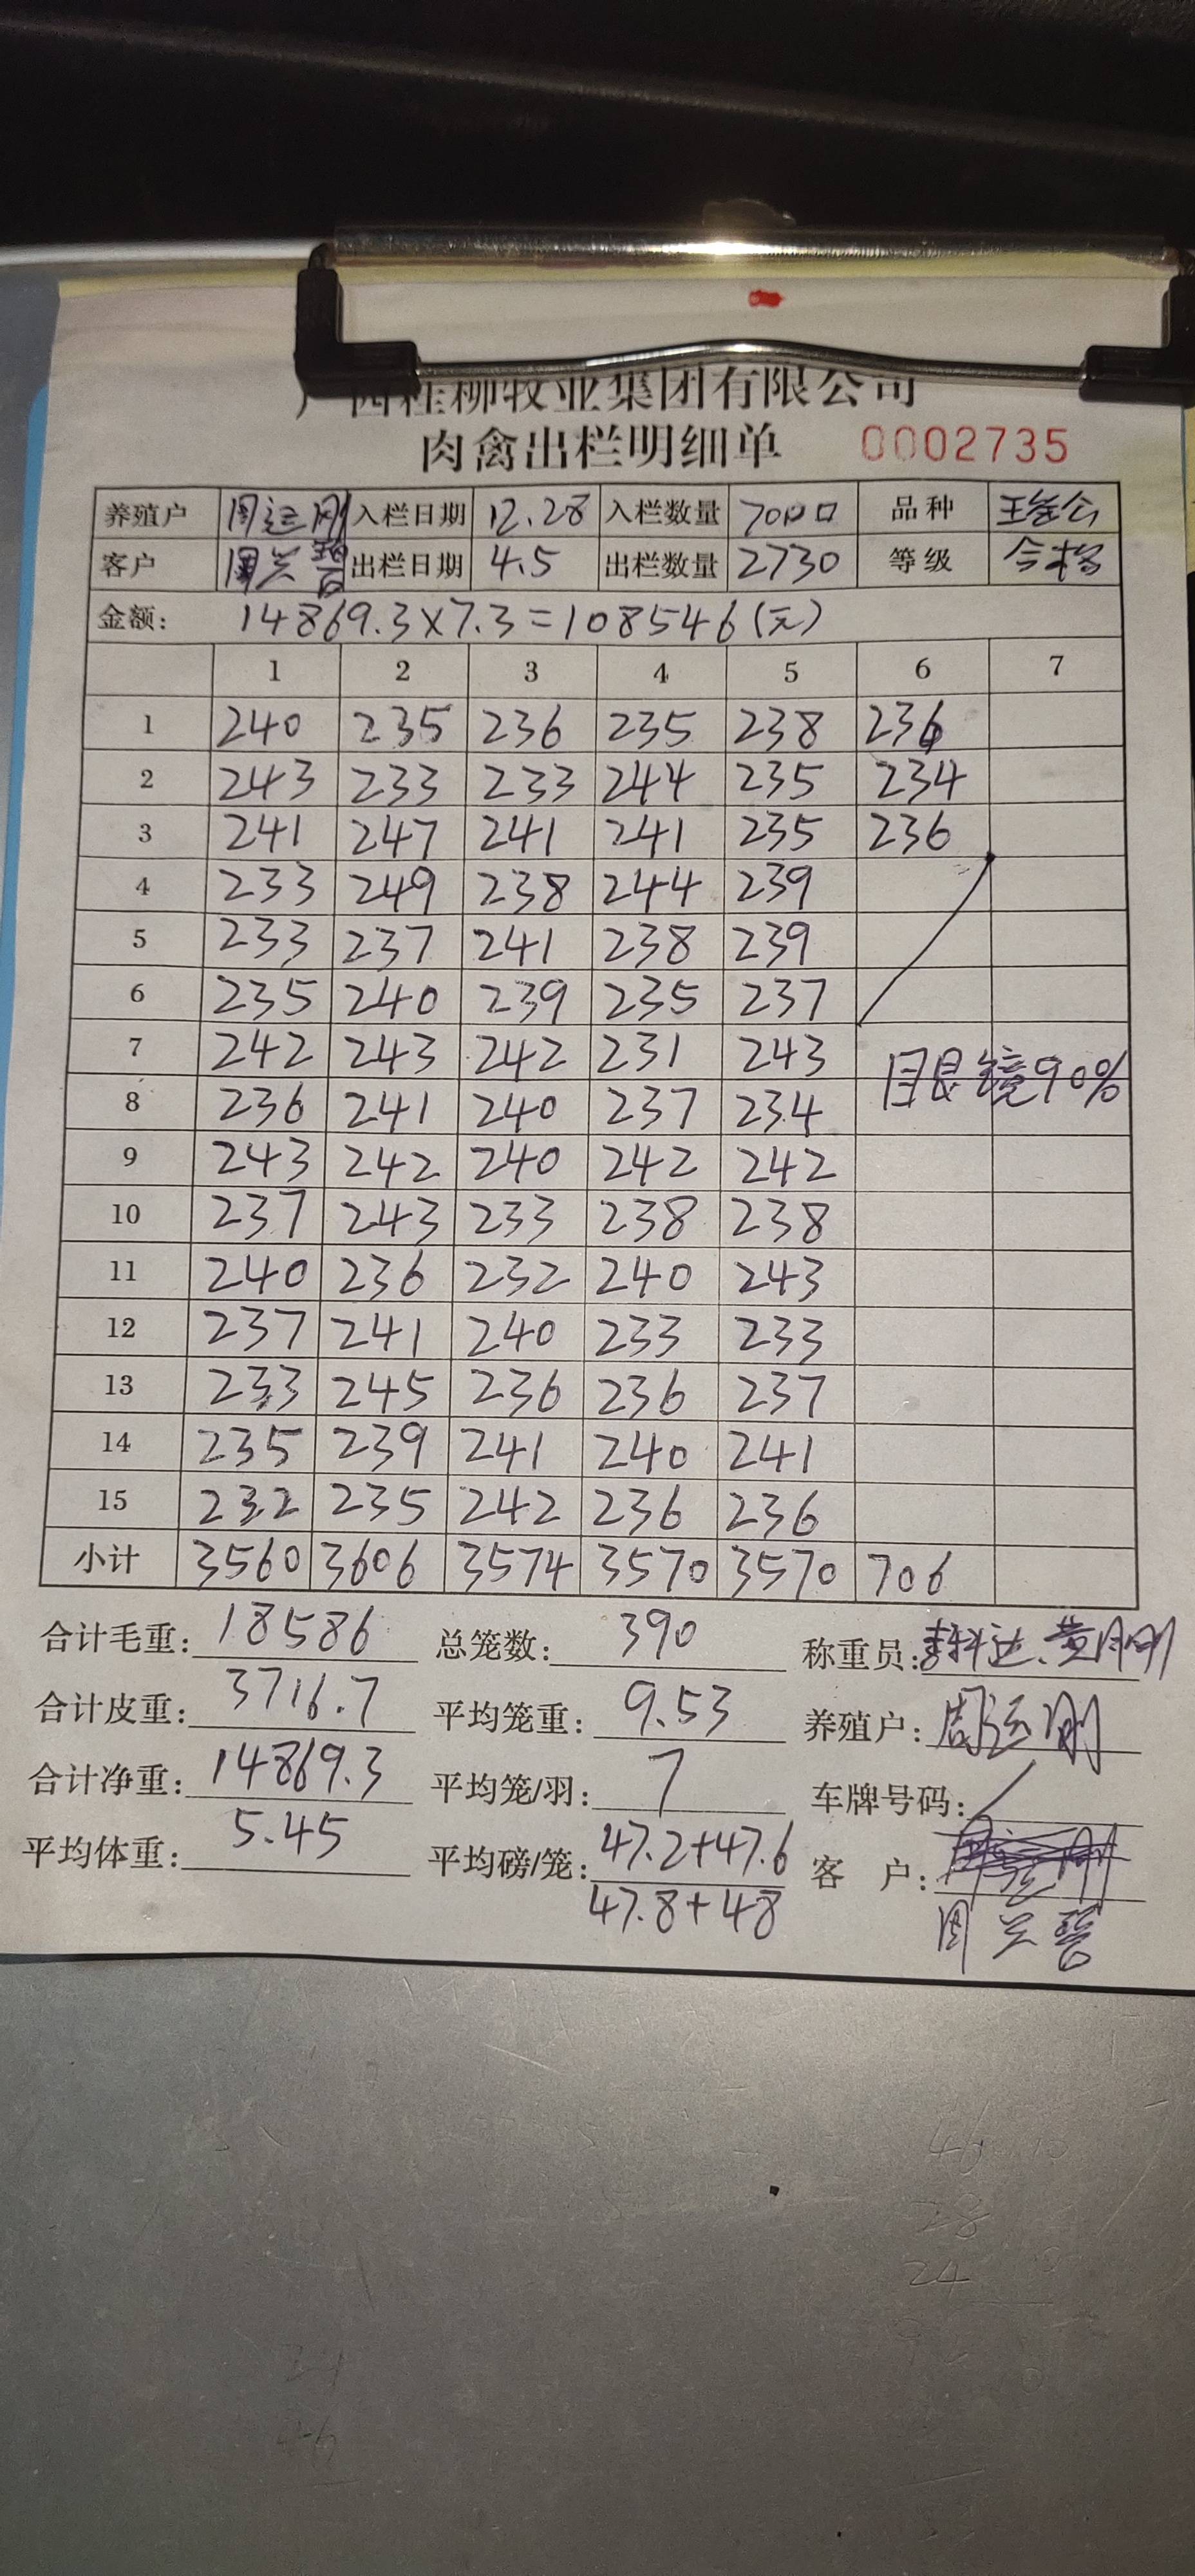 广西桂柳牧业集团有限公司
肉禽出栏明细单 0002735
养殖户 周运刚 入栏日期 12.28 入栏数量 7000 品种
客户 出栏日期 4.5 出栏数量 2730 等级 合格
金额: 14869.3×7.3=108546(元)
1 2 3 4 5 6 7
1 240 235 236 235 238 236
2 243 233 233 244 235 234
3 241 247 241 241 235 236
4 233 249 238 244 239
5 233 237 241 238 239
6 235 240 239 235 237
7 242 243 242 231 243
眼镜90%
8 236 241 240 237 234
9 243 242 240 242 242
10 237 243 233 238 238
11 240 236 232 240 243
12 237 241 240 233 233
13 233 245 236 236 237
14 235 239 241 240 241
15 232 235 242 236 236
小计 3560 3606 3574 3570 3570 706
合计毛重: 18586 总笼数: 390 称重员:
合计皮重: 3716.7 平均笼重: 9.53 养殖户: 周运刚
合计净重: 14869.3 平均笼/羽: 7 车牌号码: /
平均体重: 5.45 平均磅/笼: 47.2+47.6 客 户:
47.8+48